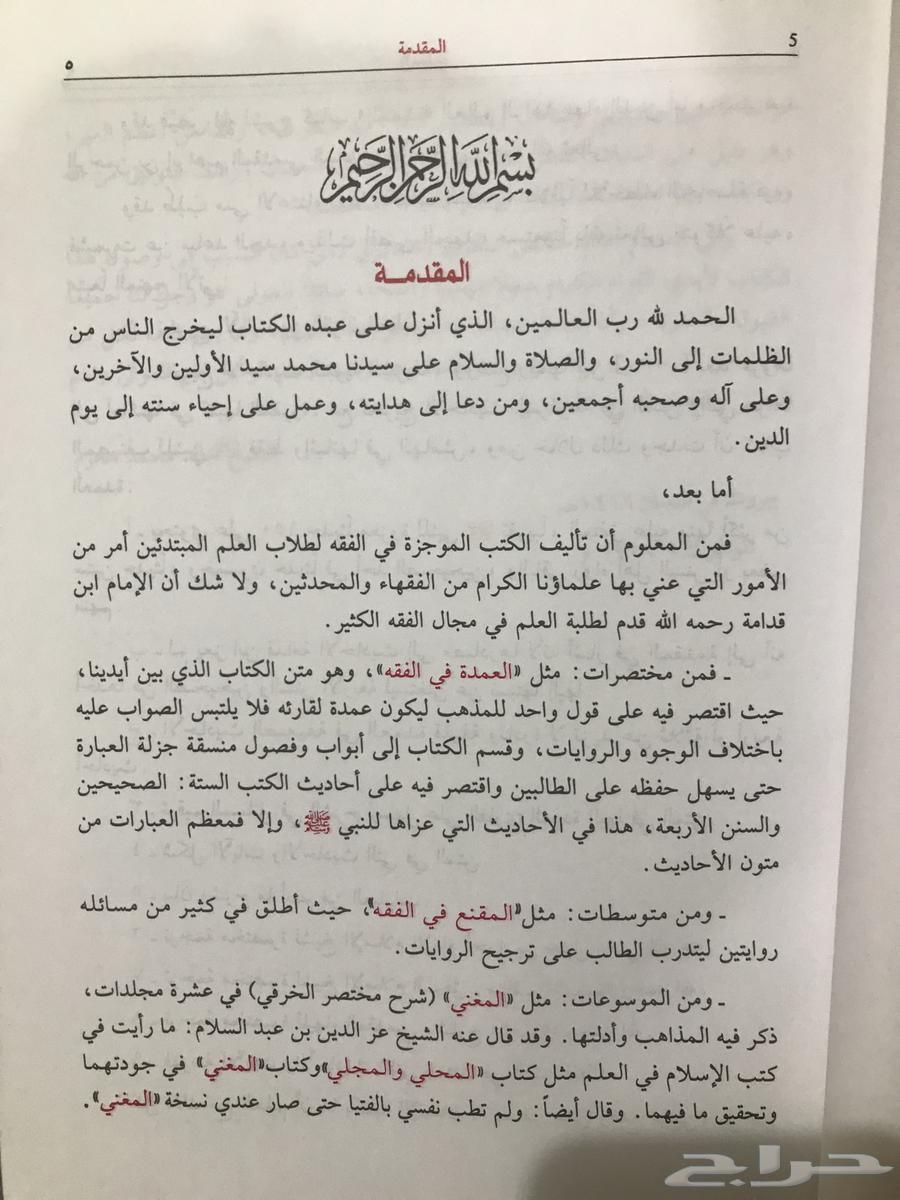 5 المقدمة ٥
بسم الله الرحمن الرحيم
المقدمــة
الحمد لله رب العالمين، الذي أنزل على عبده الكتاب ليخرج الناس من
الظلمات إلى النور، والصلاة والسلام على سيدنا محمد سيد الأولين والآخرين،
وعلى آله وصحبه أجمعين، ومن دعا إلى هدايته، وعمل على إحياء سنته إلى يوم
الدين.
أما بعد،
فمن المعلوم أن تأليف الكتب الموجزة في الفقه لطلاب العلم المبتدئين أمر من
الأمور التي عني بها علماؤنا الكرام من الفقهاء والمحدثين، ولا شك أن الإمام ابن
قدامة رحمه الله قدم لطلبة العلم في مجال الفقه الكثير.
ـ فمن مختصرات: مثل «العمدة في الفقه»، وهو متن الكتاب الذي بين أيدينا،
حيث اقتصر فيه على قول واحد للمذهب ليكون عمدة لقارئه فلا يلتبس الصواب عليه
باختلاف الوجوه والروايات، وقسم الكتاب إلى أبواب وفصول منسقة جزلة العبارة
حتى يسهل حفظه على الطالبين واقتصر فيه على أحاديث الكتب الستة: الصحيحين
والسنن الأربعة، هذا في الأحاديث التي عزاها للنبي ﷺ، وإلا فمعظم العبارات من
متون الأحاديث.
ـ ومن متوسطات: مثل «المقنع في الفقه»، حيث أطلق في كثير من مسائله
روايتين ليتدرب الطالب على ترجيح الروايات.
ـ ومن الموسوعات: مثل «المغني» (شرح مختصر الخرقي) في عشرة مجلدات،
ذكر فيه المذاهب وأدلتها. وقد قال عنه الشيخ عز الدين بن عبد السلام: ما رأيت في
كتب الإسلام في العلم مثل كتاب «المحلي والمجلي» وكتاب «المغني» في جودتهما
وتحقيق ما فيهما. وقال أيضاً: ولم تطب نفسي بالفتيا حتى صار عندي نسخة «المغني».
حراج